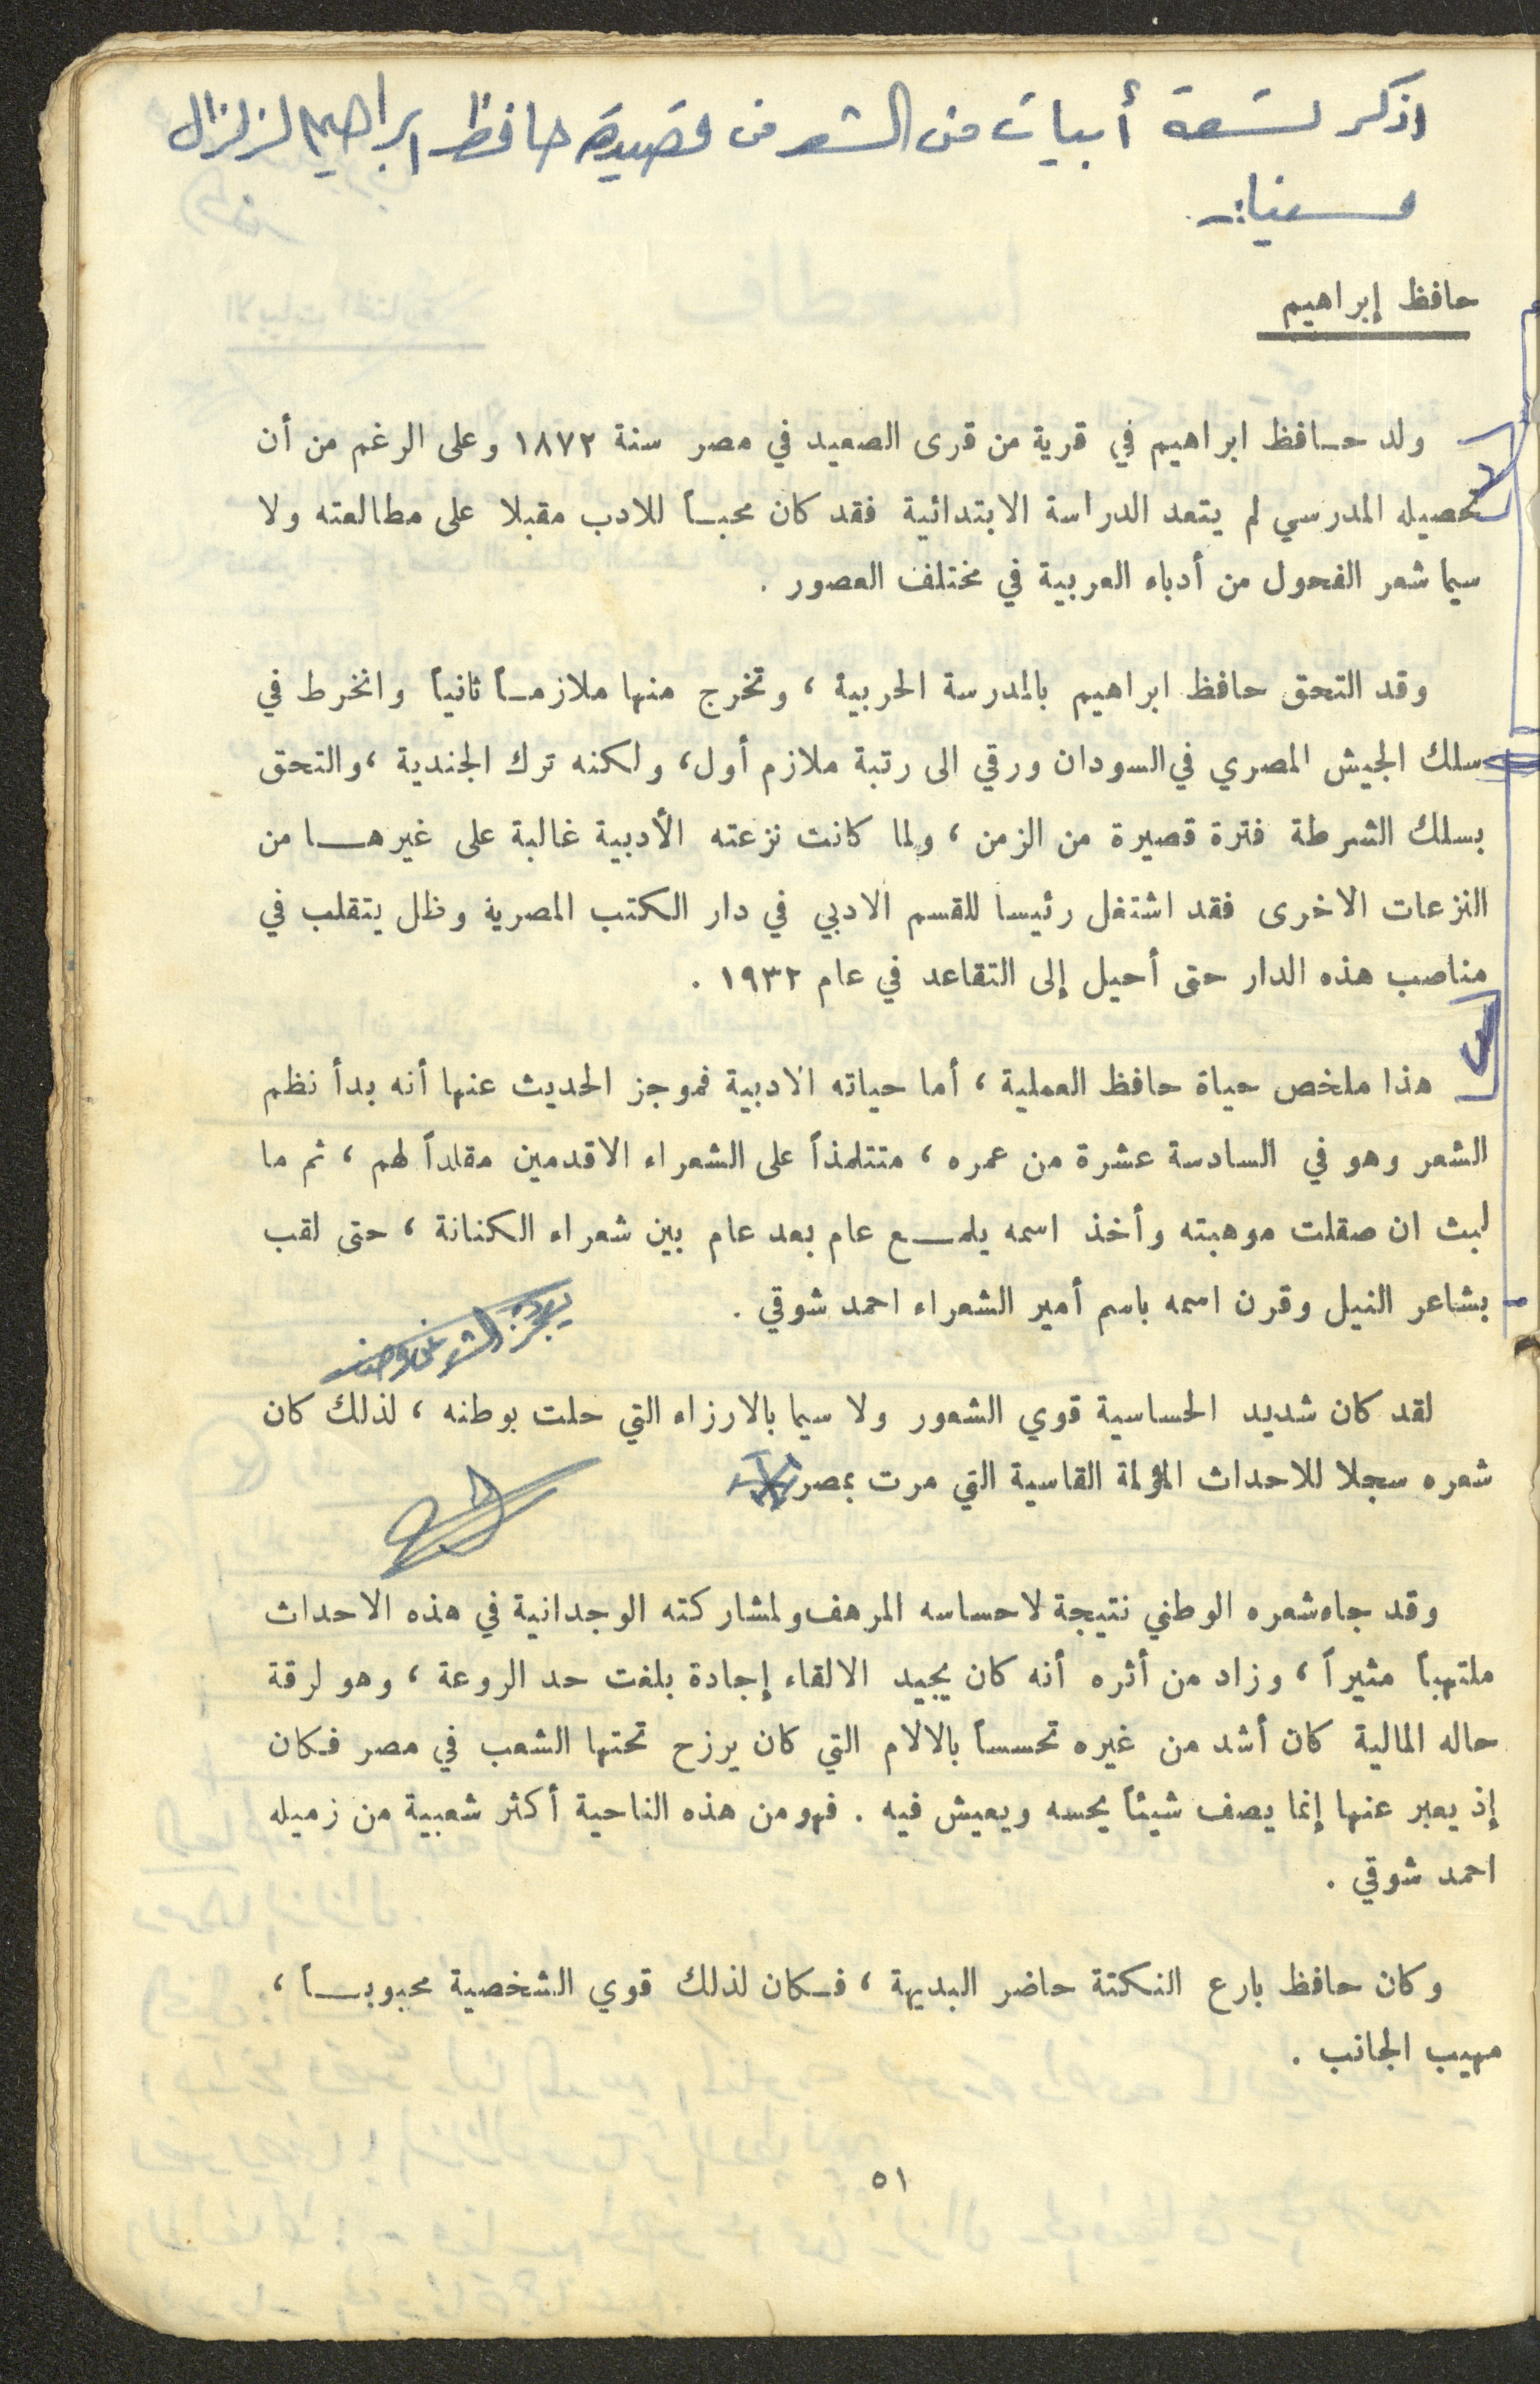 اذكر تسعة أبيات من الشعر من قصيدة حافظ ابراهيم لزلزال
مسينا :-
حافظ إبراهيم
ولد حافظ ابراهيم في قرية من قرى الصعيد في مصر سنة ١٨٧٢ وعلى الرغم من أن
تحصيله المدرسي لم يتعد الدراسة الابتدائية فقد كان محباً للادب مقبلا على مطالعته ولا
سيما شعر الفحول من أدباء العربية في مختلف العصور .
وقد التحق حافظ ابراهيم بالمدرسة الحربية ، وتخرج منها ملازماً ثانياً وانخرط في
سلك الجيش المصري في السودان ورقي الى رتبة ملازم أول ، ولكنه ترك الجندية ، والتحق
بسلك الشرطة فترة قصيرة من الزمن ، ولما كانت نزعته الأدبية غالبة على غيرها من
النزعات الاخرى فقد اشتغل رئيسا للقسم الادبي في دار الكتب المصرية وظل يتقلب في
مناصب هذه الدار حتى أحيل إلى التقاعد في عام ١٩٣٢ .
هذا ملخص حياة حافظ العملية ، أما حياته الادبية فموجز الحديث عنها أنه بدأ نظم
الشعر وهو في السادسة عشرة من عمره ، متتلمذاً على الشعراء الاقدمين مقلداً لهم ، ثم ما
لبث ان صقلت موهبته وأخذ اسمه يلمع عام بعد عام بين شعراء الكنانة ، حتى لقب
بشاعر النيل وقرن اسمه باسم أمير الشعراء احمد شوقي .
لقد كان شديد الحساسية قوي الشعور ولا سيما بالارزاء التي حلت بوطنه ، لذلك كان
شعره سجلا للاحداث المؤلمة القاسية التي مرت بمصر
وقد جاء شعره الوطني نتيجة لاحساسه المرهف ولمشاركته الوجدانية في هذه الاحداث
ملتهباً مثيراً ، وزاد من أثره أنه كان يجيد الالقاء إجادة بلغت حد الروعة ، وهو لرقة
حاله المالية كان أشد من غيره تحسساً بالالام التي كان يرزح تحتها الشعب في مصر فكان
إذ يعبر عنها إنما يصف شيئاً يحسه ويعيش فيه . فهو من هذه الناحية أكثر شعبية من زميله
احمد شوقي .
وكان حافظ بارع النكتة حاضر البديهة ، فكان لذلك قوي الشخصية محبوباً ،
مهيب الجانب .
٥١